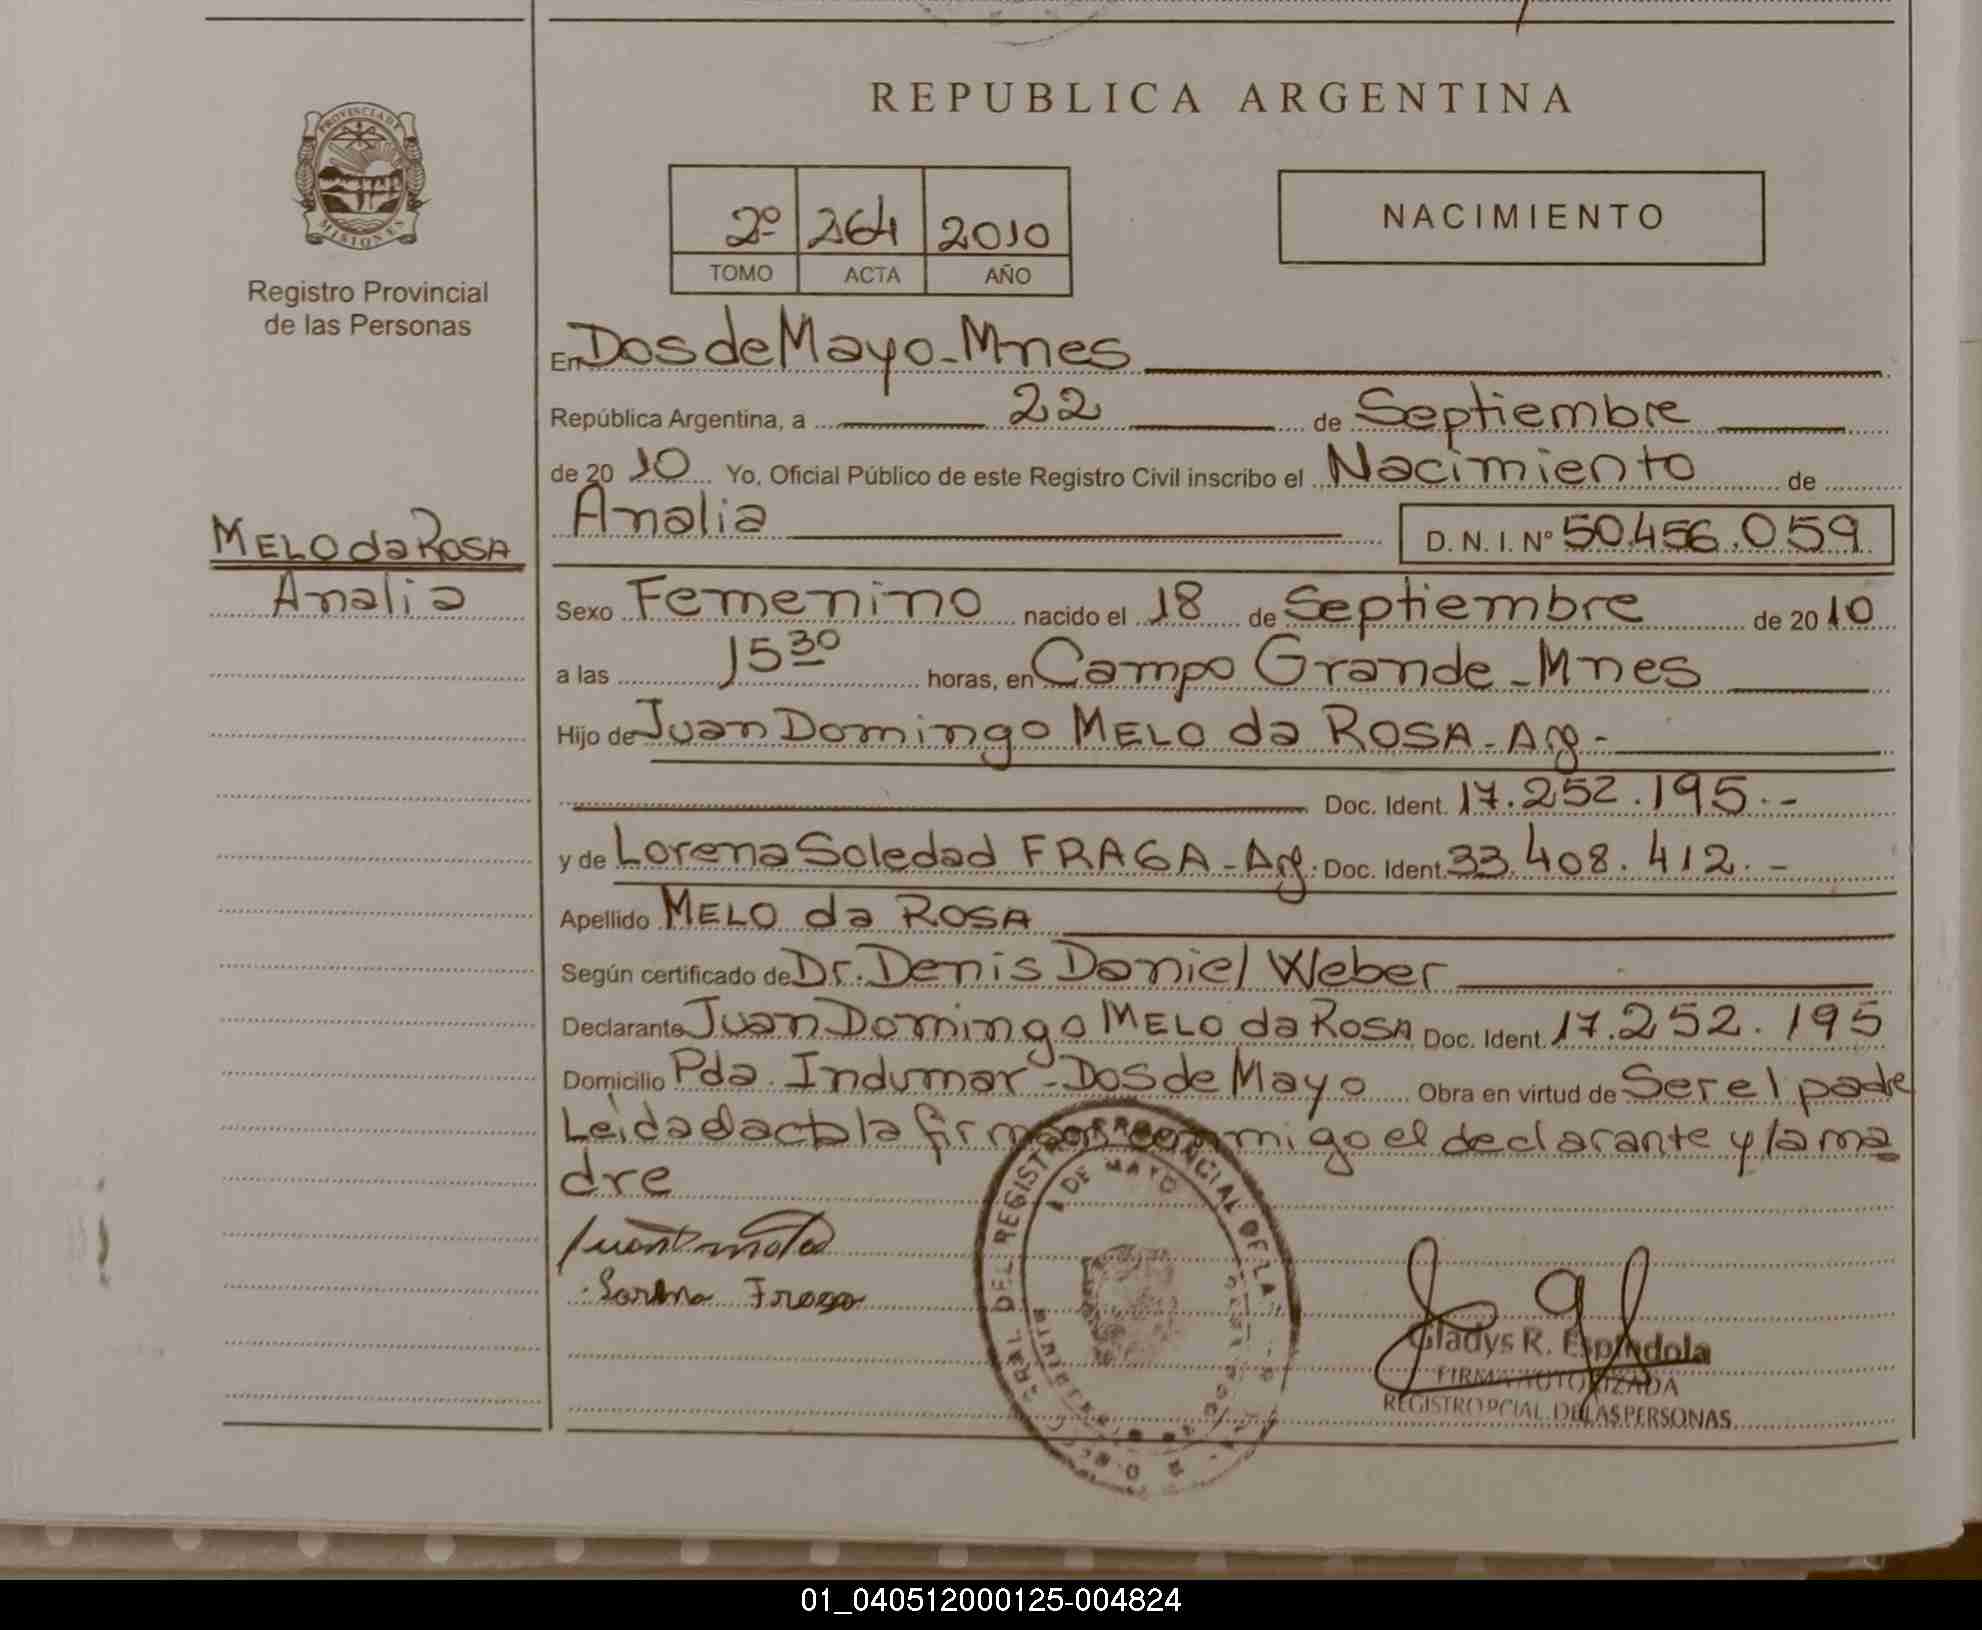 REPUBLICA ARGENTINA
PROVINCIA DE
MISIONES
Registro Provincial
de las Personas
2º 264 2010
TOMO ACTA AÑO
NACIMIENTO
En Dos de Mayo - Mnes
República Argentina, a 22 de Septiembre
de 20 10 Yo, Oficial Público de este Registro Civil inscribo el Nacimiento de
Analia D. N. I. Nº 50.456.059
MELO da ROSA
Analia
Sexo Femenino nacido el 18 de Septiembre de 20 10
a las 15 30 horas, en Campo Grande - Mnes
Hijo de Juan Domingo MELO da ROSA - Arg -
Doc. Ident. 17.252.195.-
y de Lorena Soledad FRAGA - Arg. Doc. Ident. 33.408.412.-
Apellido MELO da ROSA
Según certificado de Dr. Denis Daniel Weber
Declarante Juan Domingo MELO da ROSA Doc. Ident. 17.252.195
Domicilio Pda. Indumar - Dos de Mayo Obra en virtud de Ser el padre
Leida el acta la firman conmigo el declarante y la ma
dre
Lorena Fraga
2 DE MAYO
Gladys R. Espindola
FIRMA AUTORIZADA
REGISTRO PCIAL. DE LAS PERSONAS
01_040512000125-004824